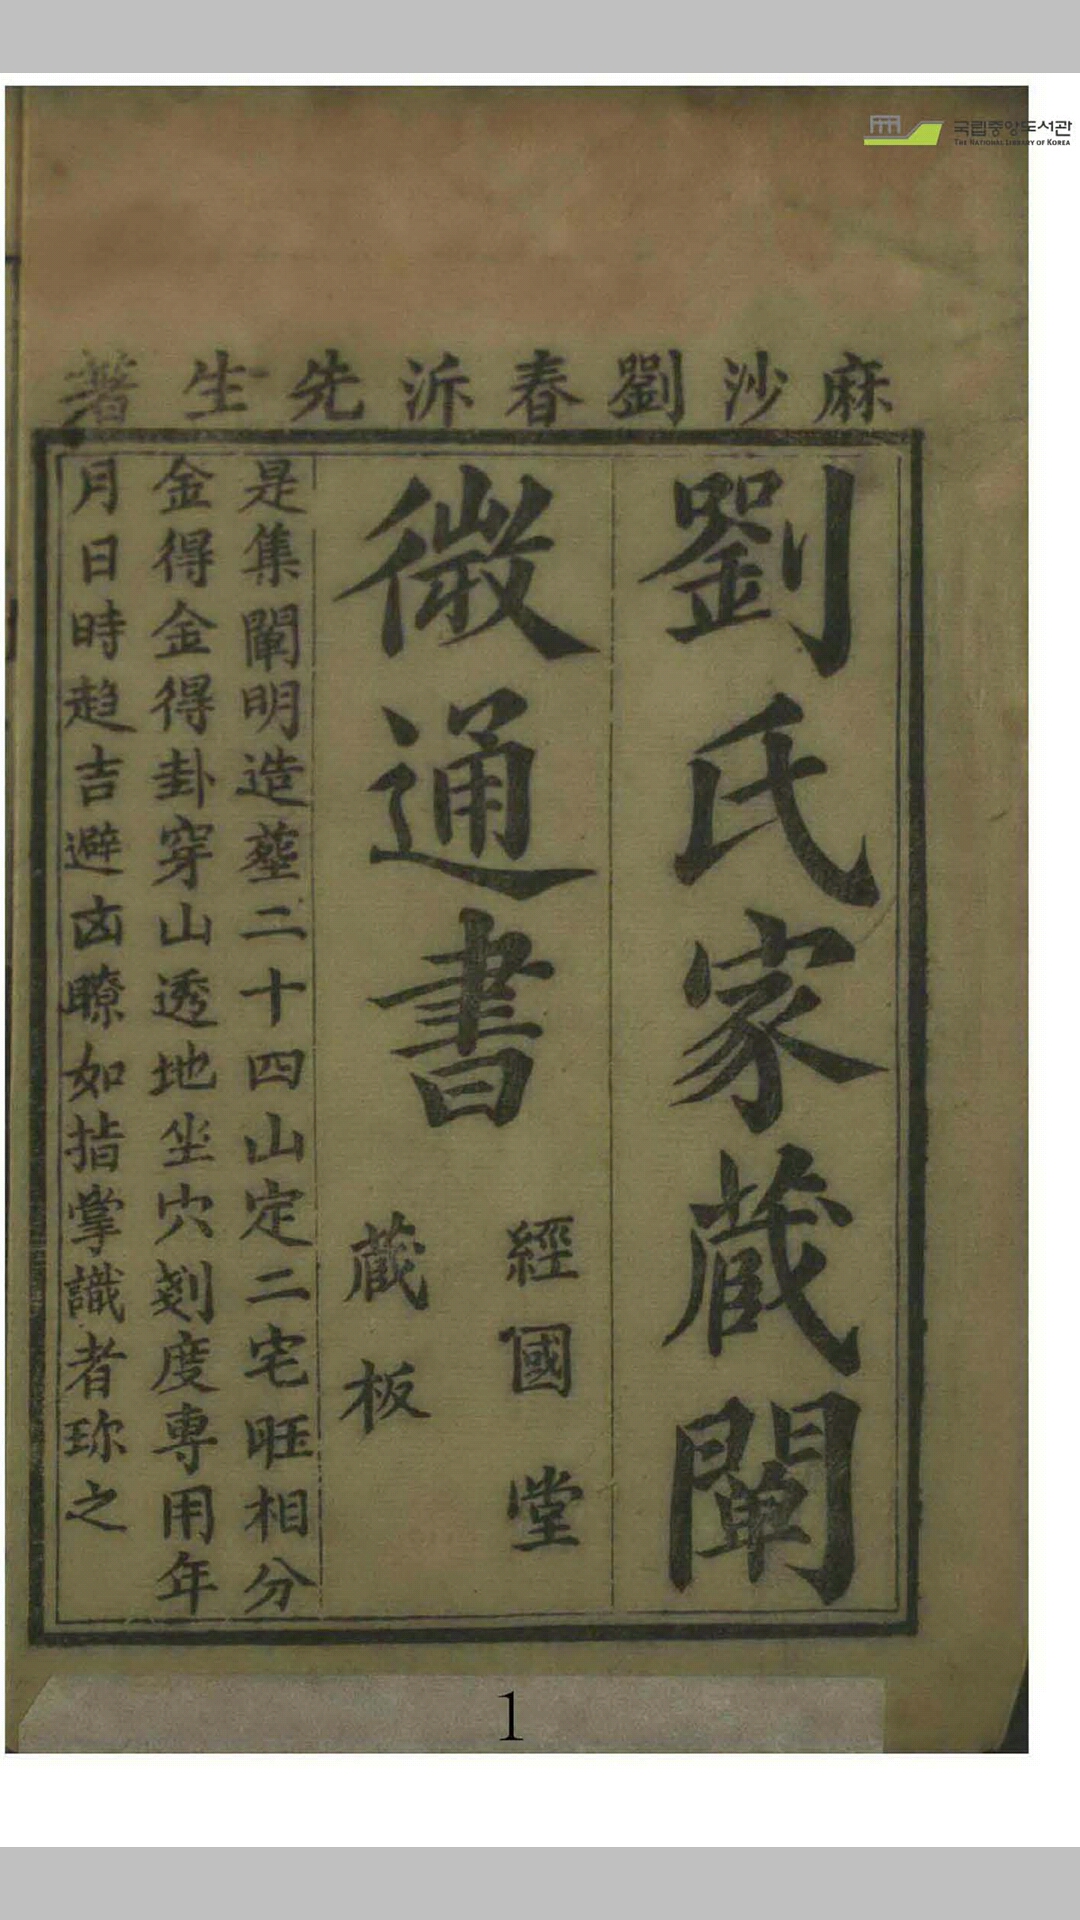 국립중앙도서관
THE NATIONAL LIBRARY OF KOREA
麻沙劉春沂先生著
劉氏家蔵闡
微通書
經國堂
蔵板
是集闡明造塟二十四山定二宅旺相分
金得金得卦穿山透地坐穴刻度專用年
月日時趋吉避凶瞭如指掌識者珎之
1